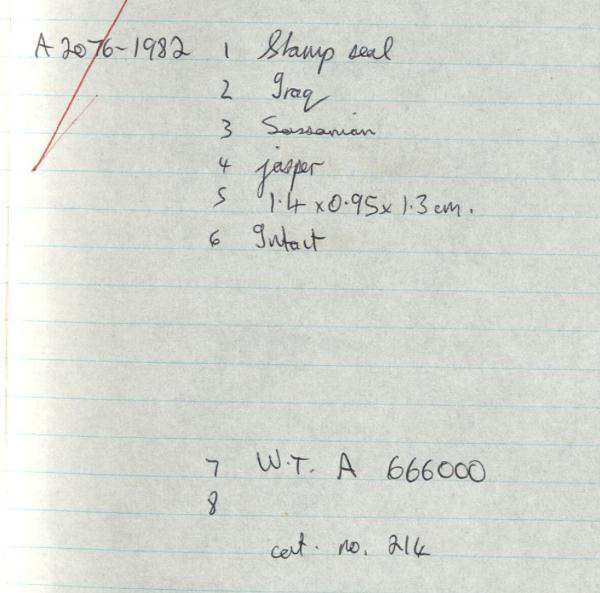 A 2076-1982 1 Stamp seal
2 Iraq
3 Sassanian
4 jasper
5 1.4 x 0.95 x 1.3 cm.
6 Intact
7 W.T. A 666000
8
cat. no. 214